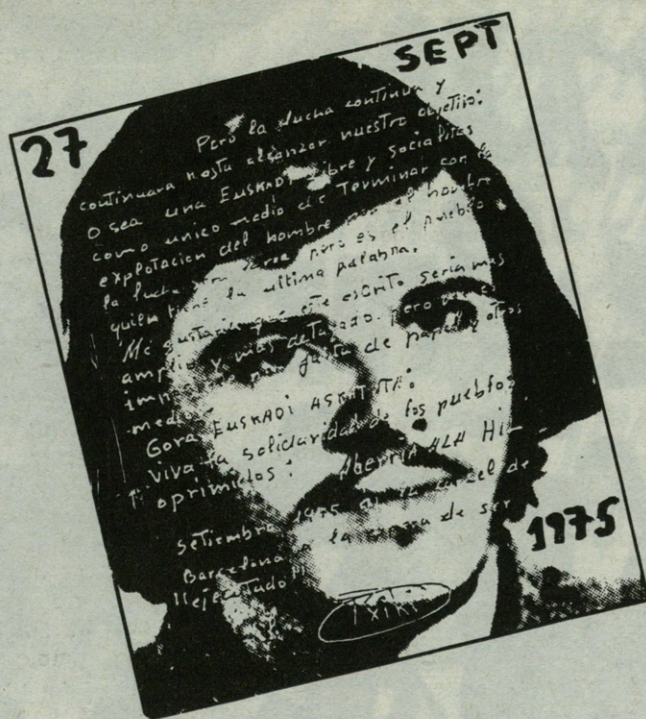 27
SEPT
Pero la lucha continua y
continuara hasta alcanzar nuestro objetivo:
O sea una EUSKADI libre y socialista
como unico medio de Terminar con la
explotacion del hombre por el hombre
la lucha sera pero es el pueblo
quien tiene la ultima palabra.
Me gustaria que este escrito seria mas
amplio y mas detallado. Pero me es
por falta de papel y otros
medios
Gora EUSKADI ASKATUTA!
Viva la solidaridad de los pueblos
oprimidos! Aberria ALA Hil
Setiembre 1975 en la carcel de
Barcelona a la espera de ser
"ejecutado"
Txiki
1975